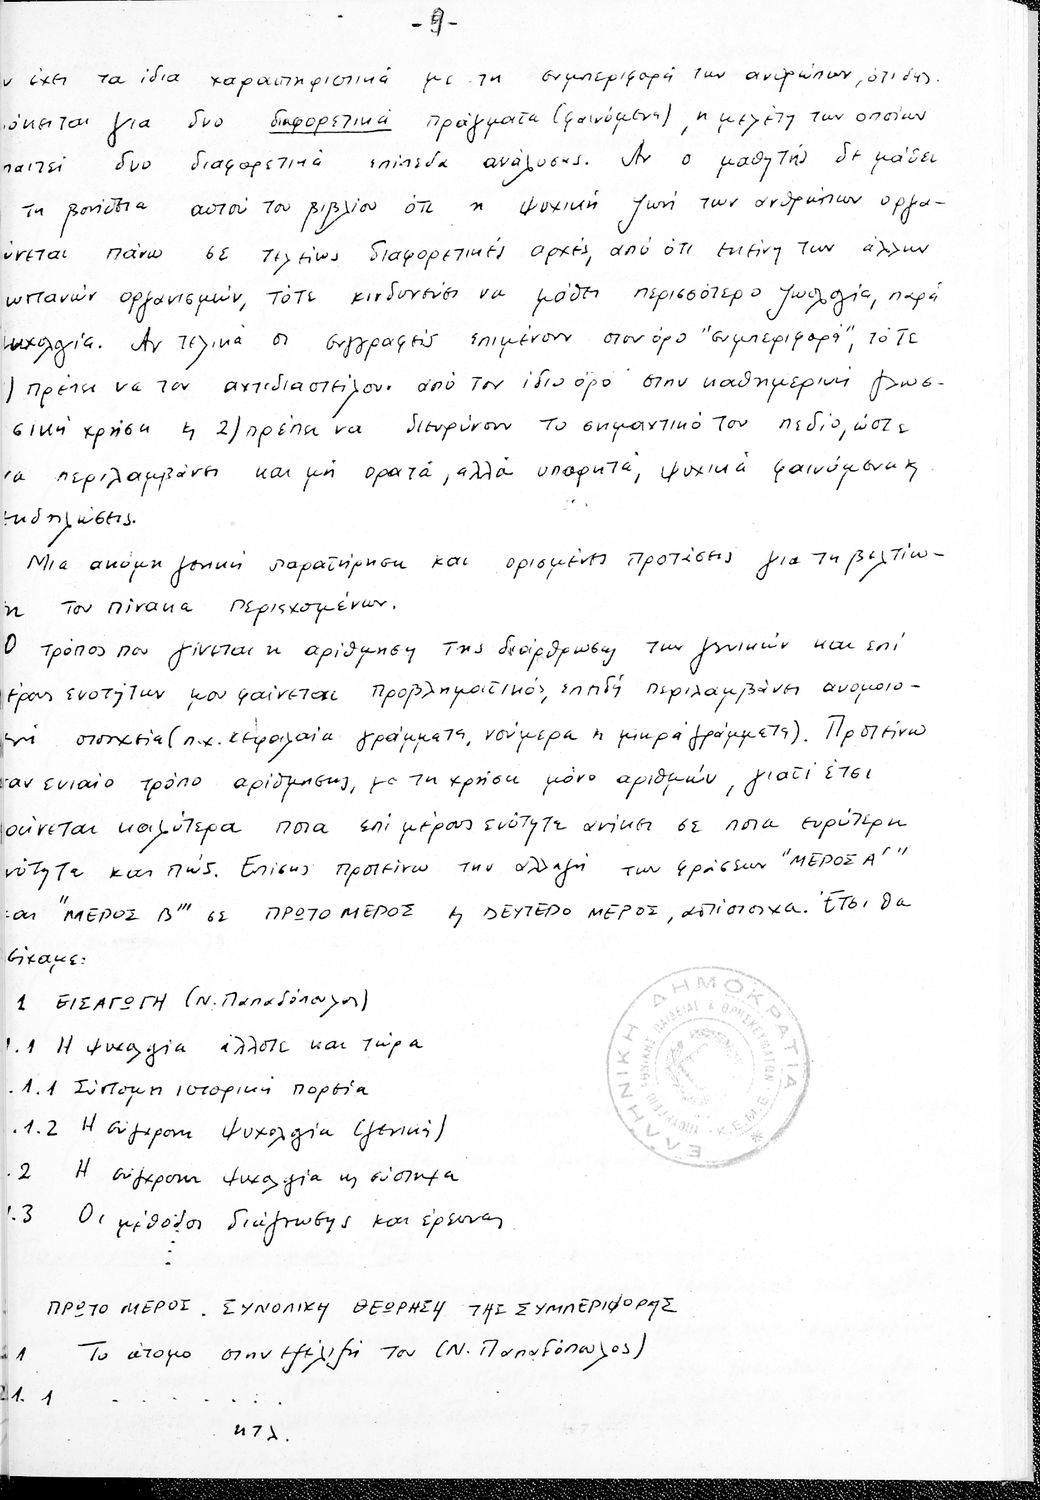 -9-
ν έχει τα ίδια χαρακτηριστικά με τη συμπεριφορά των ανθρώπων, ότι δηλ.
όκειται για δυο διαφορετικά πράγματα (φαινόμενα), η μελέτη των οποίων
παιτεί δυο διαφορετικά επίπεδα ανάλυσης. Αν ο μαθητής δε μάθει
τη βοήθεια αυτού του βιβλίου ότι η ψυχική ζωή των ανθρώπων οργα-
ώνεται πάνω σε τελείως διαφορετικές αρχές, από ότι εκείνη των άλλων
ωντανών οργανισμών, τότε κινδυνεύει να μάθει περισσότερο ζωολογία, παρά
υχολογία. Αν τελικά οι συγγραφείς επιμένουν στον όρο "συμπεριφορά", τότε
) πρέπει να τον αντιδιαστείλουν από τον ίδιο όρο στην καθημερινή γλωσ-
σική χρήση ή 2) πρέπει να διευρύνουν το σημαντικό του πεδίο, ώστε
να περιλαμβάνει και μή ορατά, αλλά υπαρκτά, ψυχικά φαινόμενα ή
εκδηλώσεις.
Μια ακόμη γενική παρατήρηση και ορισμένες προτάσεις για τη βελτίω-
ση του πίνακα περιεχομένων.
Ο τρόπος που γίνεται η αρίθμηση της διάρθρωσης των γενικών και επί
μέρους ενοτήτων μου φαίνεται προβληματικός, επειδή περιλαμβάνει ανομοιο-
ενή στοιχεία (π.χ. κεφαλαία γράμματα, νούμερα ή μικρά γράμματα). Προτείνω
αν ενιαίο τρόπο αρίθμησης, με τη χρήση μόνο αριθμών, γιατί έτσι
φαίνεται καλύτερα ποια επί μέρους ενότητα ανήκει σε ποια ευρύτερη
νότητα και πώς. Επίσης προτείνω την αλλαγή των φράσεων "ΜΕΡΟΣ Α'"
και "ΜΕΡΟΣ Β'" σε ΠΡΩΤΟ ΜΕΡΟΣ ή ΔΕΥΤΕΡΟ ΜΕΡΟΣ, αντίστοιχα. Έτσι θα
είχαμε:
1 ΕΙΣΑΓΩΓΗ (Ν. Παπαδόπουλος)
1.1 Η ψυχολογία άλλοτε και τώρα
.1.1 Σύντομη ιστορική πορεία
.1.2 Η σύγχρονη ψυχολογία (γενική)
.2 Η σύγχρονη ψυχολογία ως σύστημα
1.3 Οι μέθοδοι διάγνωσης και έρευνας
ΠΡΩΤΟ ΜΕΡΟΣ. ΣΥΝΟΛΙΚΗ ΘΕΩΡΗΣΗ ΤΗΣ ΣΥΜΠΕΡΙΦΟΡΑΣ
1 Το άτομο στην εξέλιξή του (Ν. Παπαδόπουλος)
1.1 . . . . . . .
κτλ.
ΕΛΛΗΝΙΚΗ ΔΗΜΟΚΡΑΤΙΑ
ΥΠΟΥΡΓΕΙΟ ΕΘΝΙΚΗΣ ΠΑΙΔΕΙΑΣ & ΘΡΗΣΚΕΥΜΑΤΩΝ
Κ.Ε.Μ.Ε.